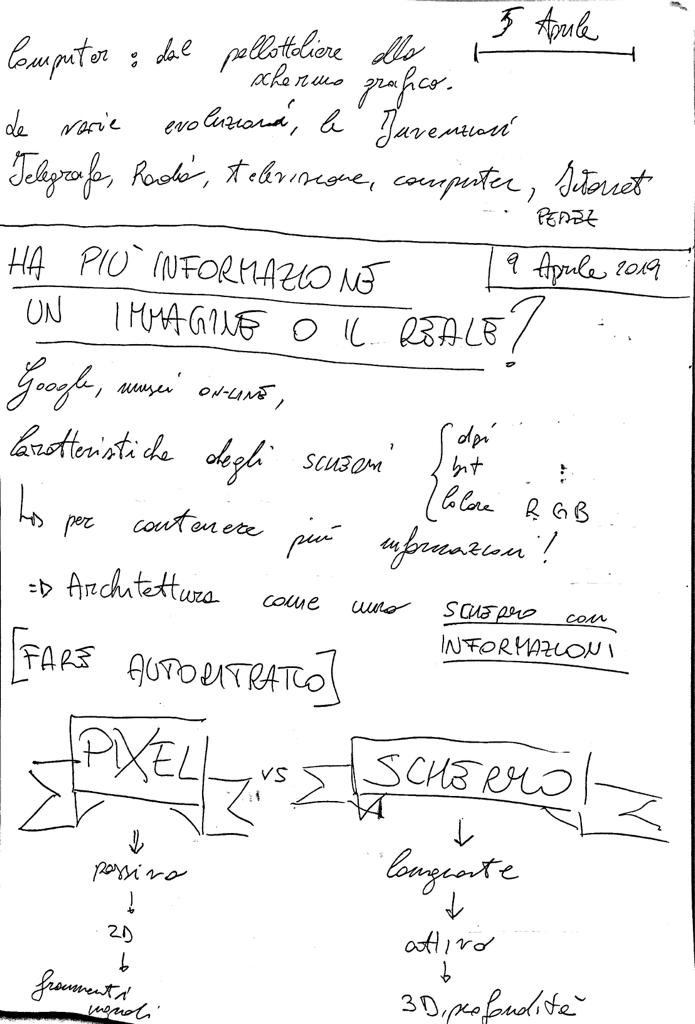 5 Aprile
Computer : dal pallottoliere allo
schermo grafico.
Le varie evoluzioni, le Invenzioni
Telegrafo, Radio, televisione, computer, Internet
HA PIÙ INFORMAZIONE
9 Aprile 2019
UN IMMAGINE O IL REALE?
Google, musei ON-LINE,
Caratteristiche degli SCHERMI
dpi
bit
Colore RGB
↳ per contenere più informazioni!
=> Architettura come uno SCHERMO con
INFORMAZIONI
[FARE AUTORITRATTO]
PIXEL vs SCHERMO
passivo
2D
frammenti
uguali
attivo
3D, profondità